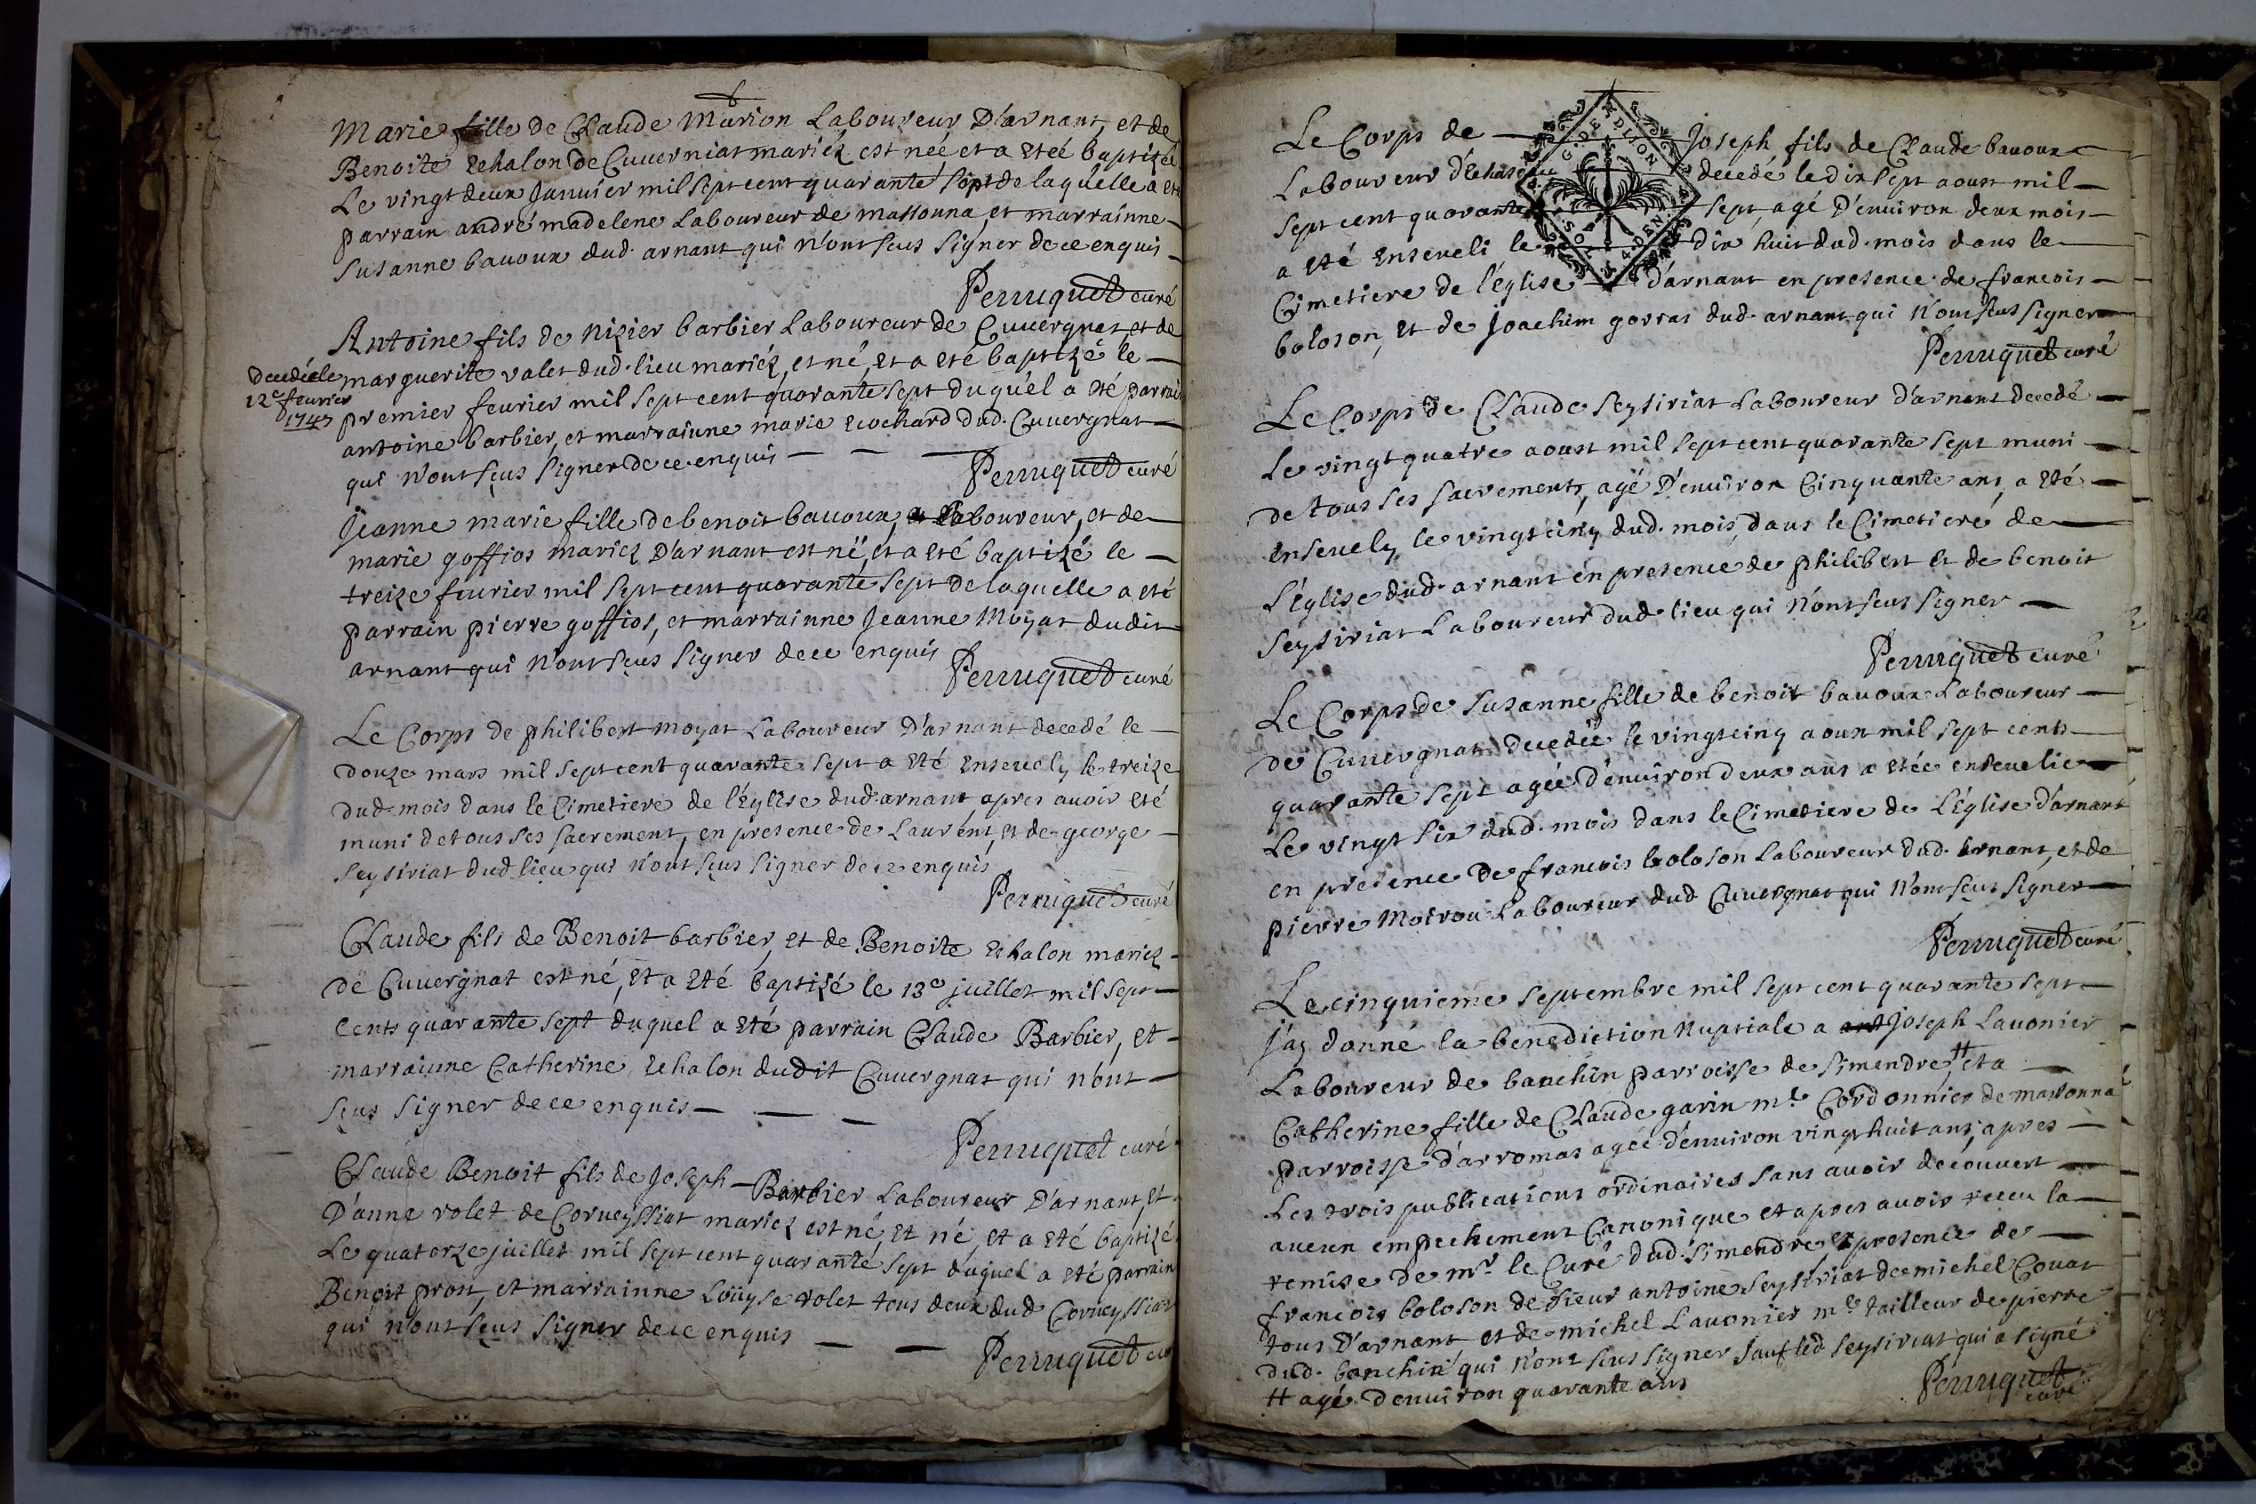 Marie fille de Claude Marion Laboureur D'arnant, et de
Benoite Echalon de Cuuerniat mariéz est neé et a eteé baptizeé
Le vingt deux Januier mil sept cent quarante sept de laquelle a eté
parrain andré madelene Laboureur de massonna, et marrainne
susanne bauoux dud. arnant qui n'ont sçus signer de ce enquis
Perruquet curé
Antoine fils de nizier barbier Laboureur de Cuuergnat, et de
marguerite valet dud. lieu mariéz, et né, et a eté baptizé le
premier feurier mil sept cent quarante sept duquel a eté parrain
antoine barbier, et marrainne marie cochard dud. Cuuergnat
qui n'ont sçus signer de ce enquis
Perruquet curé
decedé le
12e feurier
1747
Jeanne marie fille de benoit bauoux Laboureur, et de
marie goffios mariez D'arnant est né, et a eté baptizé le
treize feurier mil sept cent quarante sept de laquelle a eté
parrain pierre goffios, et marrainne Jeanne Moyat dudit
arnant qui n'ont sçus signer de ce enquis
Perruquet curé
Le Corps de philibert moyat Laboureur D'arnant decedé le
douze mars mil sept cent quarante sept a eté enseuely le treize
dud. mois dans le Cimetiere de l'Eglise dud. arnant, apres auoir eté
muni de tous ses sacrement, en presence de Laurent, et de george
seysiriat dud. lieu qui n'ont sçus signer de ce enquis
Perruquet curé
Claude fils de Benoit barbier, et de Benoite Echalon mariez
de Cuuergnat est né, et a eté baptizé le 13e juillet mil sept
cents quarante sept duquel a eté parrain Claude Barbier, et
marrainne Catherine Echalon dudit Cuuergnat qui n'ont
sçus signer de ce enquis
Perruquet curé
Claude Benoit fils de Joseph Barbier Laboureur D'arnant, et
D'anne rolet de Corueyssiat mariez est né, et né, et a eté baptizé
Le quatorze juillet mil sept cent quarante sept duquel a eté parrain
Benoit prost, et marrainne Loüyse rolet tous deux dud. Corueyssiat
qui n'ont sçus signer de ce enquis
Perruquet curé
Le Corps de Joseph fils de Claude bauoux
Laboureur d'Echase decedé le dix sept aoust mil
sept cent quarante sept, agé D'enuiron deux mois
a eté enseueli le dix huit dud. mois dans le
Cimetiere de l'église d'arnant en presence de francois
boloson, et de Joachim gorras dud. arnant qui n'ont sçus signer
Perruquet curé
G. DE DIJON
Le Corps de Claude Seysiriat Laboureur d'arnant decedé
Le vingt quatre aoust mil sept cent quarante sept muni
de tous ses sacrements, agé D'enuiron Cinquante ans, a eté
enseuely le vingt cinq dud. mois, dans le Cimetiere de
L'église dud. arnant en presence de philibert et de benoit
Seysiriat Laboureur dud. lieu qui n'ont sçus signer
Perruquet curé
Le Corps de susanne fille de benoit bauoux Laboureur
de Cuuergnat decedée le vingt cinq aoust mil sept cents
quarante sept agée d'enuiron deux ans a etée enseuelie
Le vingt six dud. mois dans le Cimetiere de L'église d'arnant
en presence de francois boloson Laboureur dud. arnant, et de
pierre Moirou Laboureur dud Cuuergnat qui n'ont sçus signer
Perruquet curé
Le cinquieme septembre mil sept cent quarante sept
j'ay donné la benediction nuptiale a Joseph Lauonier
Laboureur de banchin parroisse de simendre, # et a
Catherine fille de Claude garin me Cordonnier de massonna
parroisse d'arromas agée d'enuiron vingt huit ans, apres
Les trois publications ordinaires sans auoir decouuert
aucun empechement Canonique et apres auoir receu la
remise de mr le Curé dud. simendre, et presence de
francois boloson de sieur antoine seysiriat de michel Couat
tous D'arnant et de michel Lauonier me tailleur de pierre
dud. banchin qui n'ont sçus signer sauf led seysiriat qui a signé
# agé denuiron quarante ans
Perruquet
curé